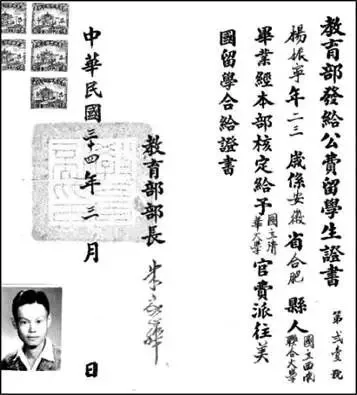 教育部發給公費留學生證書
第貳壹號
楊振寧年二三歲係安徽省合肥縣人國立西南聯合大學
畢業經本部核定給予國立清華大學官費派往美
國留學合給證書
教育部部長 朱家驊
中華民國三十四年三月 日